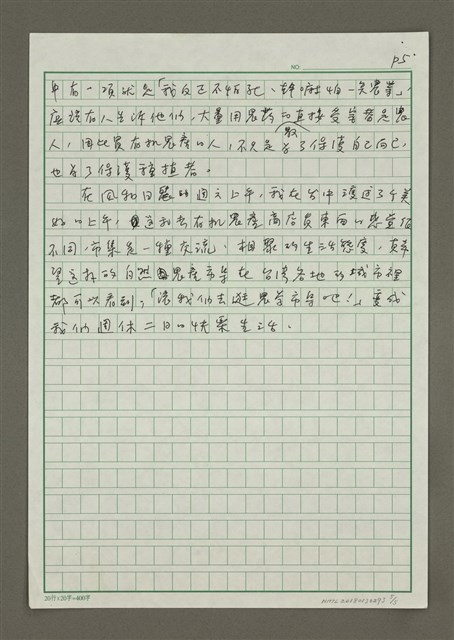 P5.
NO.
中有一項就是「我反正不怕死,幹嘛怕一点農藥」,
應該有人告訴他們,大量用農葯的直接受害者是農
人,因此買有机農產的人,不只是為了保護自己而已,
也為了保護種植者。
在風和日麗的週六上午,我在台中渡過了个美
好的上午,這和去有机農產商店買東西的感覺
不同,市集是一種交流、相聚的生活態度,真希
望這樣的自然農產市集在台灣各地的城市裡
都可以看到,「讓我們去逛農夫市集吧!」變成
我們週休二日的快樂生活。
20行×20字=400字